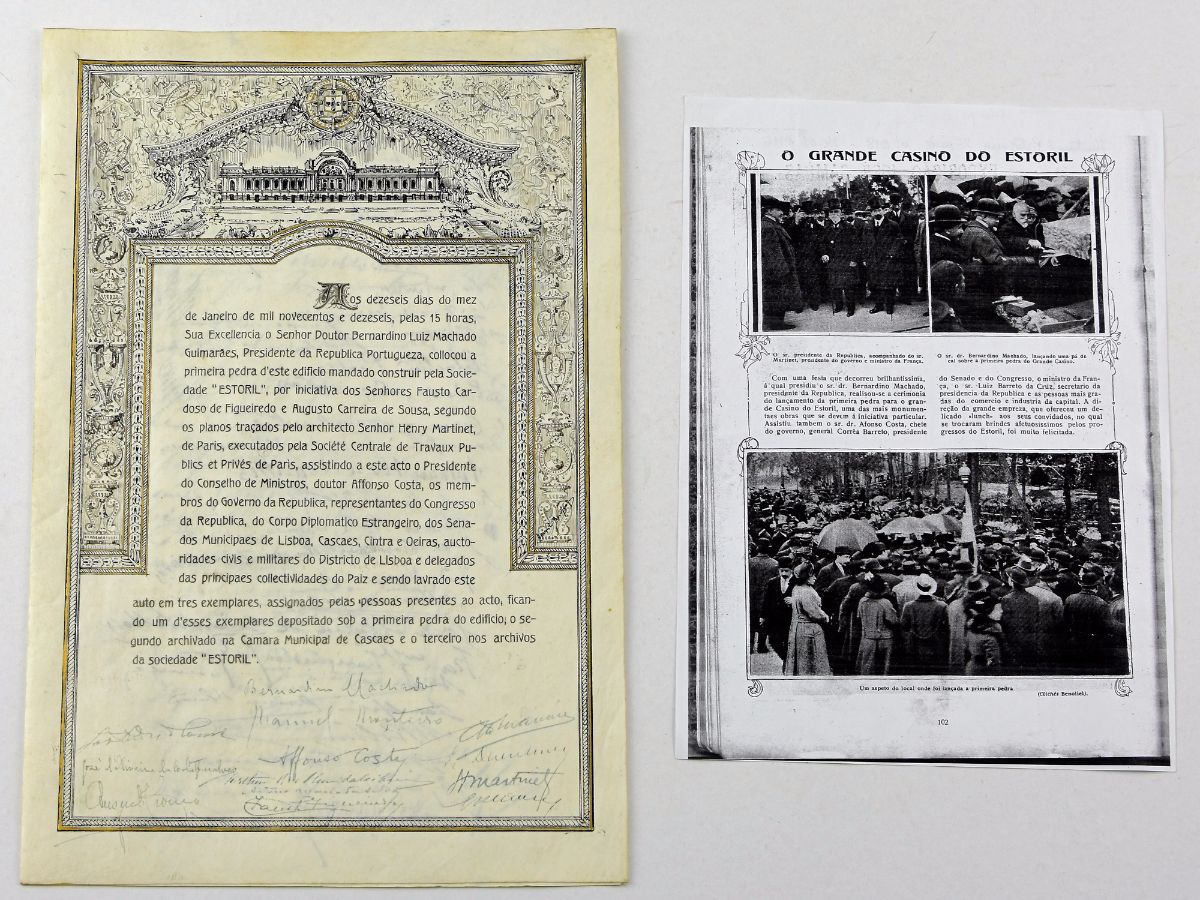 Aos dezeseis dias do mez
de Janeiro de mil novecentos e dezeseis, pelas 15 horas,
Sua Excellencia o Senhor Doutor Bernardino Luiz Machado
Guimarães, Presidente da Republica Portugueza, collocou a
primeira pedra d'este edificio mandado construir pela Socie-
dade "ESTORIL", por iniciativa dos Senhores Fausto Car-
doso de Figueiredo e Augusto Carreira de Sousa, segundo
os planos traçados pelo architecto Senhor Henry Martinet,
de Paris, executados pela Société Centrale de Travaux Pu-
blics et Privés de Paris, assistindo a este acto o Presidente
do Conselho de Ministros, doutor Affonso Costa, os mem-
bros do Governo da Republica, representantes do Congresso
da Republica, do Corpo Diplomatico Estrangeiro, dos Sena-
dos Municipaes de Lisboa, Cascaes, Cintra e Oeiras, aucto-
ridades civis e militares do Districto de Lisboa e delegados
das principaes collectividades do Paiz e sendo lavrado este
auto em tres exemplares, assignados pelas pessoas presentes ao acto, fican-
do um d'esses exemplares depositado sob a primeira pedra do edificio; o se-
gundo archivado na Camara Municipal de Cascaes e o terceiro nos archivos
da sociedade "ESTORIL".
Bernardino Machado
Manuel Monteiro
Affonso Costa
HMartinet
O GRANDE CASINO DO ESTORIL
O sr. presidente da Republica, acompanhado do sr.
Martinet, presidente do governo e ministro da França.
O sr. dr. Bernardino Machado, lançando uma pá de
cal sobre a primeira pedra do Grande Casino.
Com uma festa que decorreu brilhantissima,
á qual presidiu o sr. dr. Bernardino Machado,
presidente da Republica, realisou-se a cerimonia
do lançamento da primeira pedra para o gran-
de Casino do Estoril, uma das mais monumen-
taes obras que se devem á iniciativa particular.
Assistiu tambem o sr. dr. Afonso Costa, chefe
do governo, general Corrêa Barreto, presidente
do Senado e do Congresso, o ministro da Fran-
ça, o sr. Luiz Barreto da Cruz, secretario da
presidencia da Republica e as pessoas mais gra-
das do comercio e industria da capital. A di-
reção da grande empreza, que ofereceu um de-
licado «lunch» aos seus convidados, no qual
se trocaram brindes afetuosissimos pelos pro-
gressos do Estoril, foi muito felicitada.
Um aspeto do local onde foi lançada a primeira pedra
(Clichés Benoliel).
102